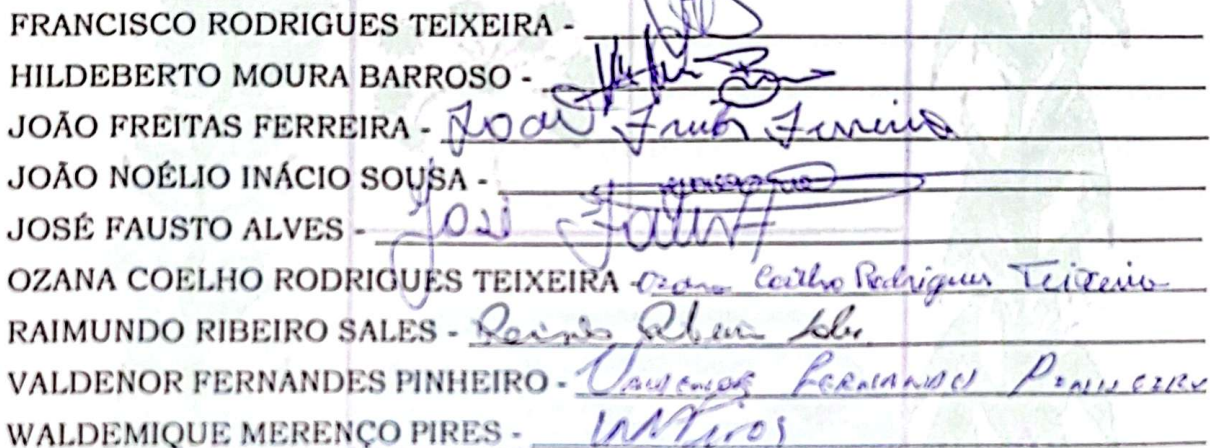 FRANCISCO RODRIGUES TEIXEIRA -
HILDEBERTO MOURA BARROSO -
JOÃO FREITAS FERREIRA - João Freitas Ferreira
JOÃO NOÉLIO INÁCIO SOUSA -
JOSÉ FAUSTO ALVES - José Fausto
OZANA COELHO RODRIGUES TEIXEIRA - Ozana Coelho Rodrigues Teixeira
RAIMUNDO RIBEIRO SALES -
VALDENOR FERNANDES PINHEIRO - Valdenor Fernandes Pinheiro
WALDEMIQUE MERENÇO PIRES -